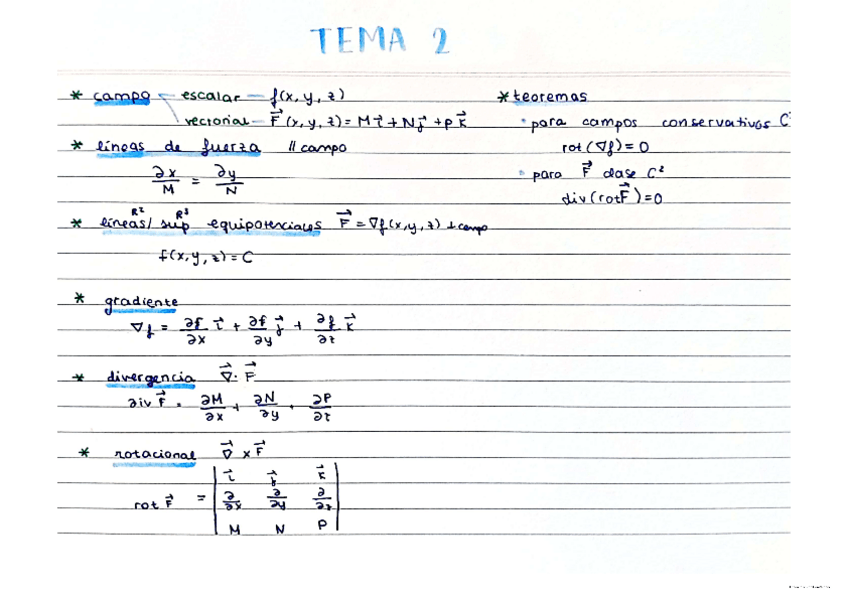 TEMA 2
* campo — escalar — f(x, y, z)
vectorial — F⃗ (x, y, z) = M i⃗ + N j⃗ + P k⃗
* líneas de fuerza // campo
∂x/M = ∂y/N
* líneas / sup equipotenciales F⃗ = ∇f(x, y, z) ⊥ campo
R² R³
f(x, y, z) = C
* gradiente
∇f = ∂f/∂x i⃗ + ∂f/∂y j⃗ + ∂f/∂z k⃗
* divergencia ∇⃗ · F⃗
div F⃗ = ∂M/∂x + ∂N/∂y + ∂P/∂z
* rotacional ∇⃗ x F⃗
rot F⃗ = | i⃗ j⃗ k⃗ |
| ∂/∂x ∂/∂y ∂/∂z |
| M N P |
* teoremas
• para campos conservativos C²
rot (∇f) = 0
• para F⃗ clase C²
div (rot F⃗) = 0